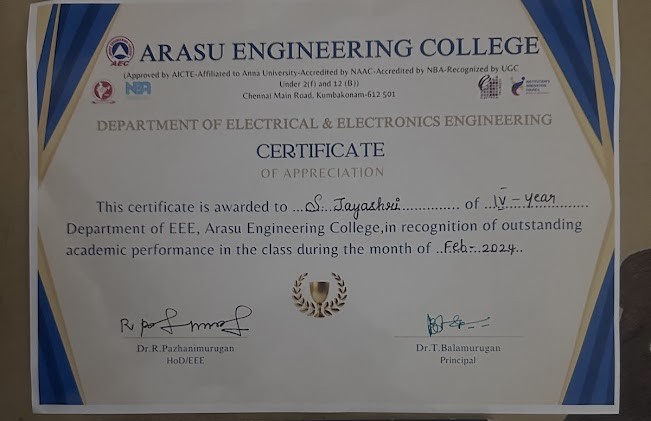 ARASU ENGINEERING COLLEGE
AEC
(Approved by AICTE-Affiliated to Anna University-Accredited by NAAC-Accredited by NBA-Recognized by UGC
Under 2(f) and 12 (B))
NBA
Chennai Main Road, Kumbakonam-612 501
DEPARTMENT OF ELECTRICAL & ELECTRONICS ENGINEERING
CERTIFICATE
OF APPRECIATION
This certificate is awarded to ...S. Jayashri............... of ..IV - year........
Department of EEE, Arasu Engineering College,in recognition of outstanding
academic performance in the class during the month of ..Feb-..2024..
Dr.R.Pazhanimurugan
HoD/EEE
Dr.T.Balamurugan
Principal